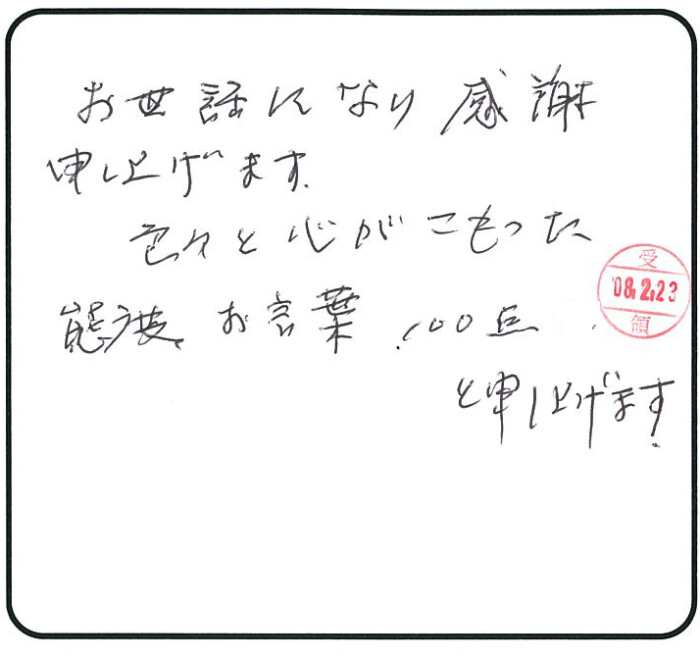 お世話になり感謝
申し上げます.
色々と心がこもった
受
'08.2.23
領
態度、お言葉、100点
と申し上げます.